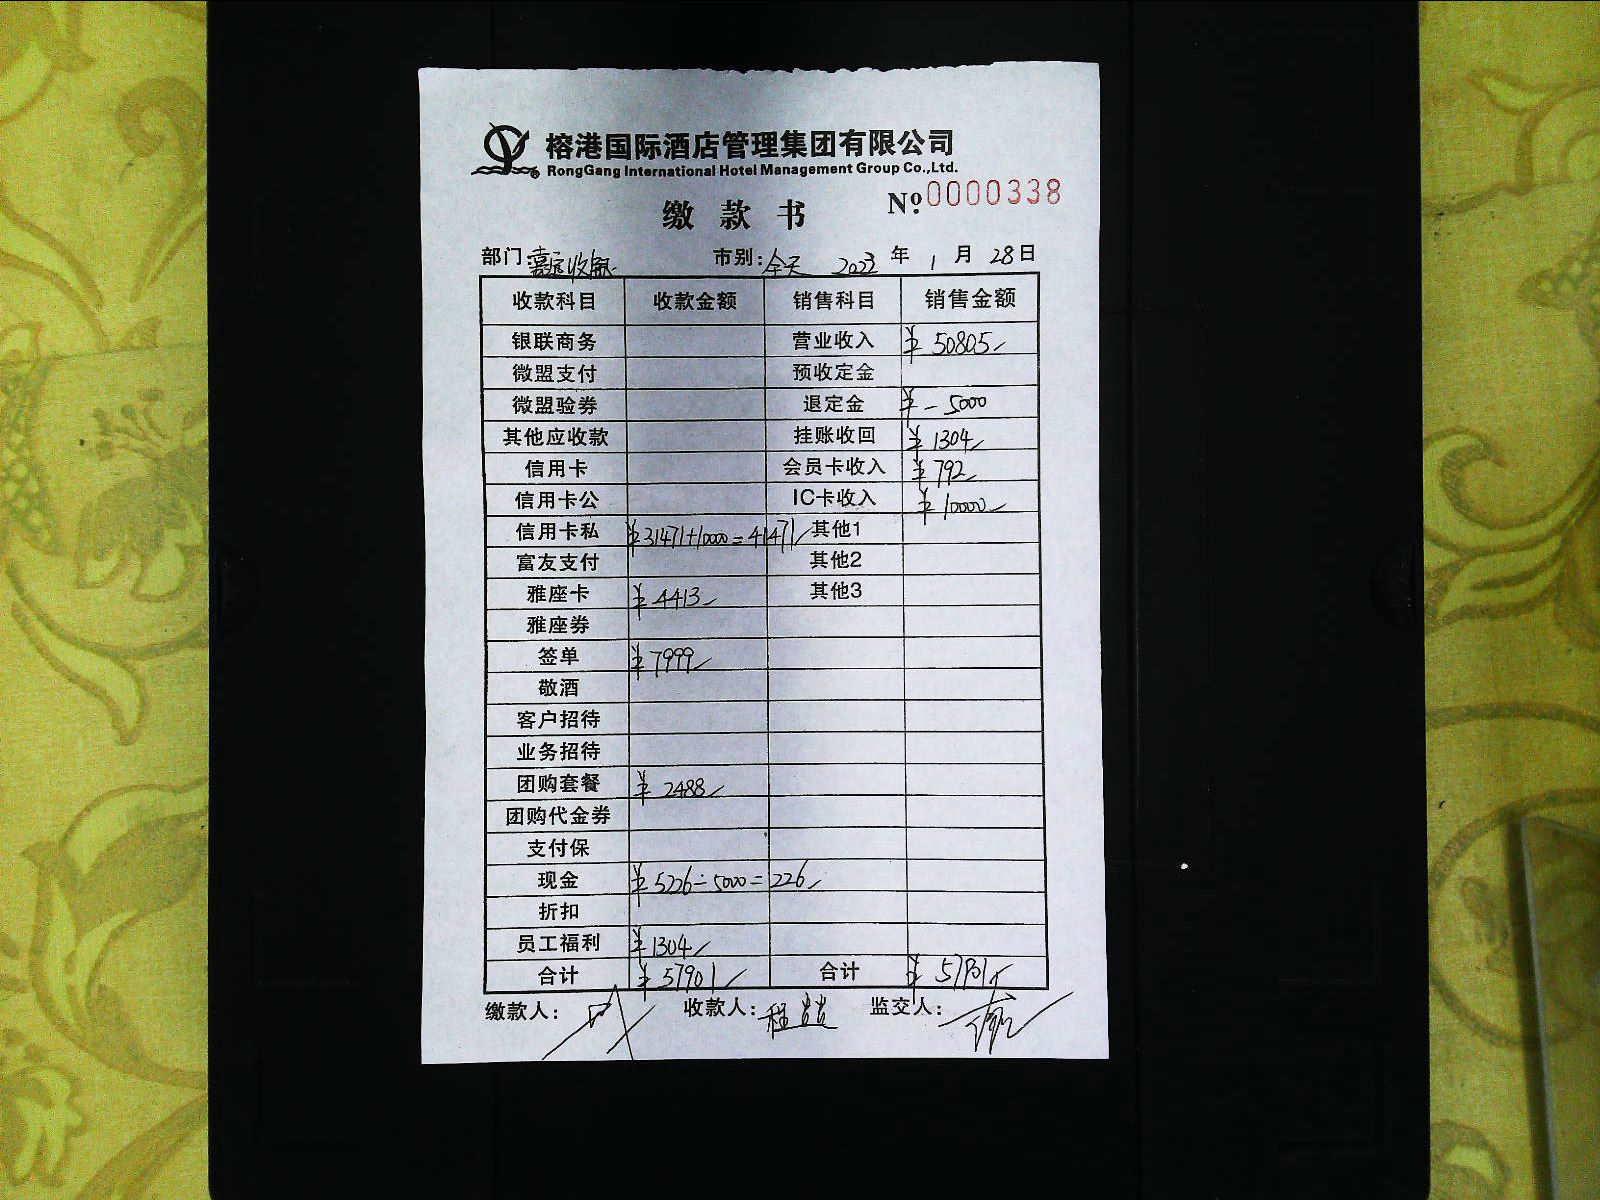 榕港国际酒店管理集团有限公司
RongGang International Hotel Management Group Co.,Ltd.
№ 0000338
缴款书
部门: 收银 市别: 全天 2023 年 1 月 28 日
收款科目 收款金额 销售科目 销售金额
银联商务 营业收入 ¥ 50805
微盟支付 预收定金
微盟验券 退定金 ¥ -5000
其他应收款 挂账收回 ¥ 1304
信用卡 会员卡收入 ¥ 792
信用卡公 IC卡收入 ¥ 10000
信用卡私 ¥31471+10000=41471 其他1
富友支付 其他2
雅座卡 ¥ 4413 其他3
雅座券
签单 ¥ 7999
敬酒
客户招待
业务招待
团购套餐 ¥ 2488
团购代金券
支付保
现金 ¥ 5226-5000=226
折扣
员工福利 ¥ 1304
合计 ¥ 57901 合计 ¥ 57901
缴款人: 收款人: 监交人: